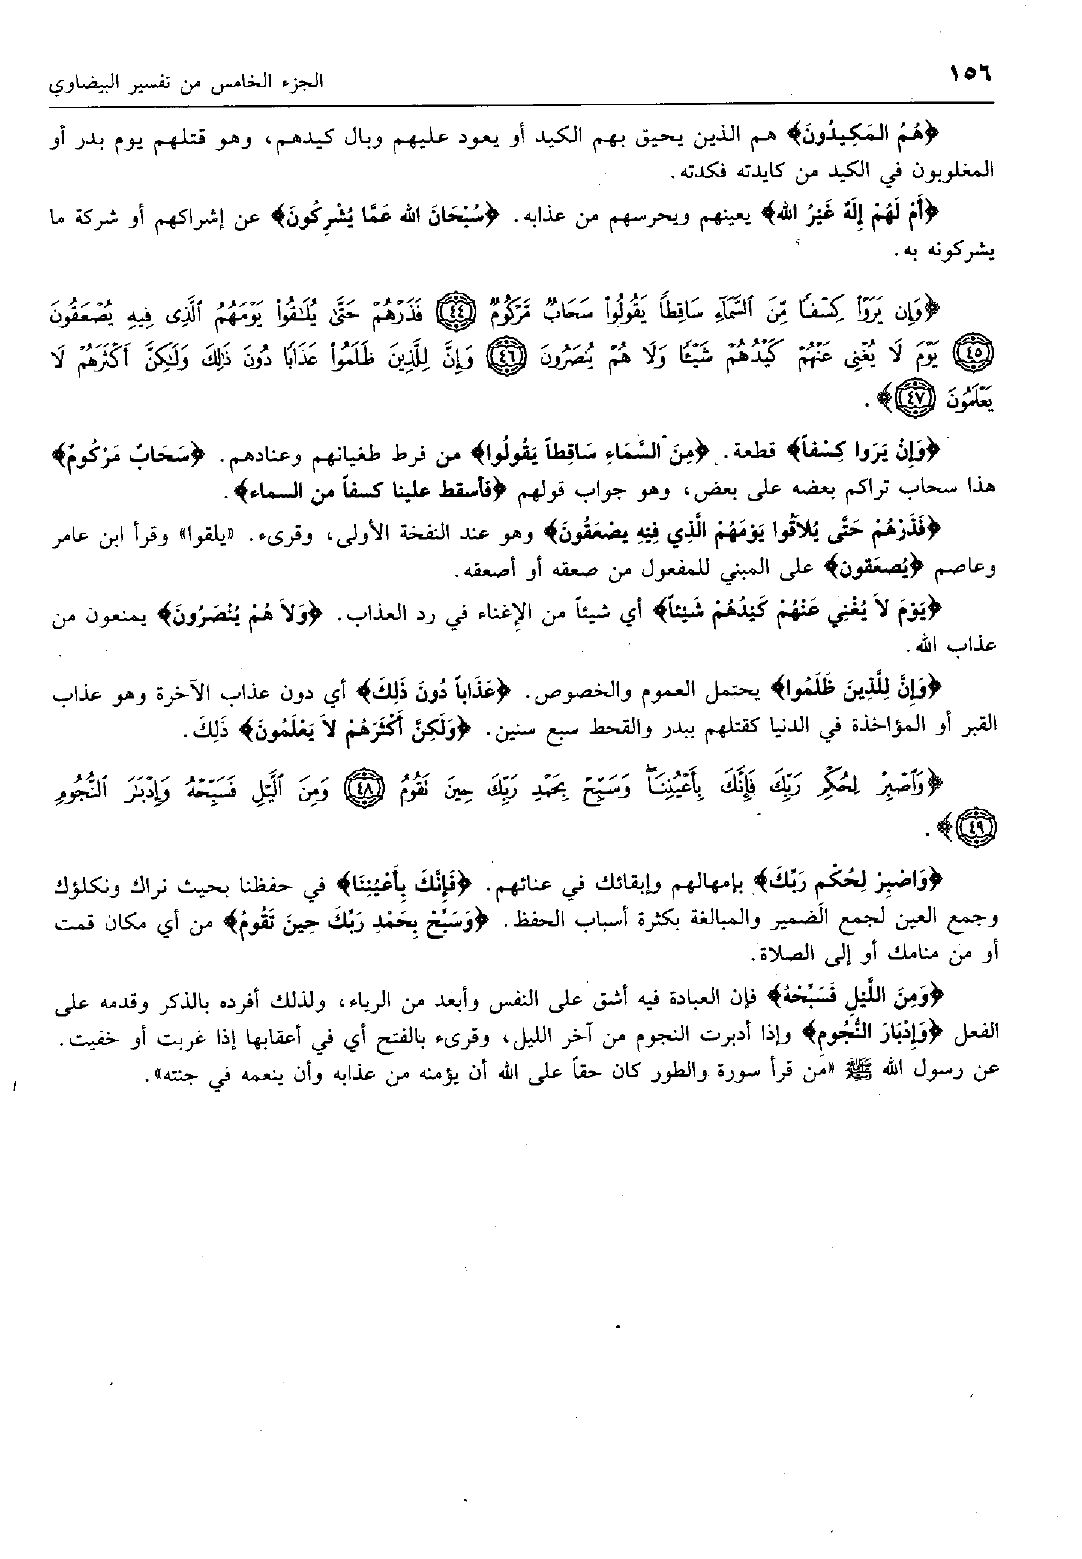 ١٥٦
الجزء الخامس من تفسير البيضاوي
﴿هُمُ المَكِيدُونَ﴾ هم الذين يحيق بهم الكيد أو يعود عليهم وبال كيدهم، وهو قتلهم يوم بدر أو
المغلوبون في الكيد من كايدته فكدته.
﴿أَمْ لَهُمْ إِلَهٌ غَيْرُ الله﴾ يعينهم ويحرسهم من عذابه. ﴿سُبْحَانَ الله عَمَّا يُشْرِكُونَ﴾ عن إشراكهم أو شركة ما
يشركونه به.
﴿وَإِن يَرَوْا۟ كِسْفًا مِّنَ ٱلسَّمَآءِ سَاقِطًا يَقُولُوا۟ سَحَابٌ مَّرْكُومٌ ﴿٤٤﴾ فَذَرْهُمْ حَتَّىٰ يُلَـٰقُوا۟ يَوْمَهُمُ ٱلَّذِى فِيهِ يُصْعَقُونَ
﴿٤٥﴾ يَوْمَ لَا يُغْنِى عَنْهُمْ كَيْدُهُمْ شَيْـًٔا وَلَا هُمْ يُنصَرُونَ ﴿٤٦﴾ وَإِنَّ لِلَّذِينَ ظَلَمُوا۟ عَذَابًا دُونَ ذَٰلِكَ وَلَـٰكِنَّ أَكْثَرَهُمْ لَا
يَعْلَمُونَ ﴿٤٧﴾﴾.
﴿وَإِنْ يَرَوا كِسْفاً﴾ قطعة. ﴿مِنَ السَّمَاءِ سَاقِطاً يَقُولُوا﴾ من فرط طغيانهم وعنادهم. ﴿سَحَابٌ مَرْكُومٌ﴾
هذا سحاب تراكم بعضه على بعض، وهو جواب قولهم ﴿فأسقط علينا كسفاً من السماء﴾.
﴿فَذَرْهُمْ حَتَّى يُلاَقُوا يَوْمَهُمْ الَّذِي فِيْهِ يصْعَقُونَ﴾ وهو عند النفخة الأولى، وقرىء. «يلقوا» وقرأ ابن عامر
وعاصم ﴿يُصعَقون﴾ على المبني للمفعول من صعقه أو أصعقه.
﴿يَوْمَ لاَ يُغْنِي عَنْهُمْ كَيْدُهُمْ شَيْئاً﴾ أي شيئاً من الإغناء في رد العذاب. ﴿وَلاَ هُمْ يُنْصَرُونَ﴾ يمنعون من
عذاب الله.
﴿وَإِنَّ لِلَّذِينَ ظَلَمُوا﴾ يحتمل العموم والخصوص. ﴿عَذَاباً دُونَ ذَلِكَ﴾ أي دون عذاب الآخرة وهو عذاب
القبر أو المؤاخذة في الدنيا كقتلهم ببدر والقحط سبع سنين. ﴿وَلَكِنَّ أَكْثَرَهُمْ لاَ يَعْلَمُونَ﴾ ذَلِكَ.
﴿وَٱصْبِرْ لِحُكْمِ رَبِّكَ فَإِنَّكَ بِأَعْيُنِنَا ۖ وَسَبِّحْ بِحَمْدِ رَبِّكَ حِينَ تَقُومُ ﴿٤٨﴾ وَمِنَ ٱلَّيْلِ فَسَبِّحْهُ وَإِدْبَـٰرَ ٱلنُّجُومِ
﴿٤٩﴾﴾.
﴿وَاصْبِرْ لِحُكْمِ رَبِّكَ﴾ بإمهالهم وإبقائك في عنائهم. ﴿فَإِنَّكَ بِأَعْيُنِنَا﴾ في حفظنا بحيث نراك ونكلؤك
وجمع العين لجمع الضمير والمبالغة بكثرة أسباب الحفظ. ﴿وَسَبِّحْ بِحَمْدِ رَبِّكَ حِينَ تَقُومُ﴾ من أي مكان قمت
أو من منامك أو إلى الصلاة.
﴿وَمِنَ اللَّيْلِ فَسَبِّحْهُ﴾ فإن العبادة فيه أشق على النفس وأبعد من الرياء، ولذلك أفرده بالذكر وقدمه على
الفعل ﴿وَإِدْبَارَ النُّجُومِ﴾ وإذا أدبرت النجوم من آخر الليل، وقرىء بالفتح أي في أعقابها إذا غربت أو خفيت.
عن رسول الله ﷺ «من قرأ سورة والطور كان حقاً على الله أن يؤمنه من عذابه وأن ينعمه في جنته».